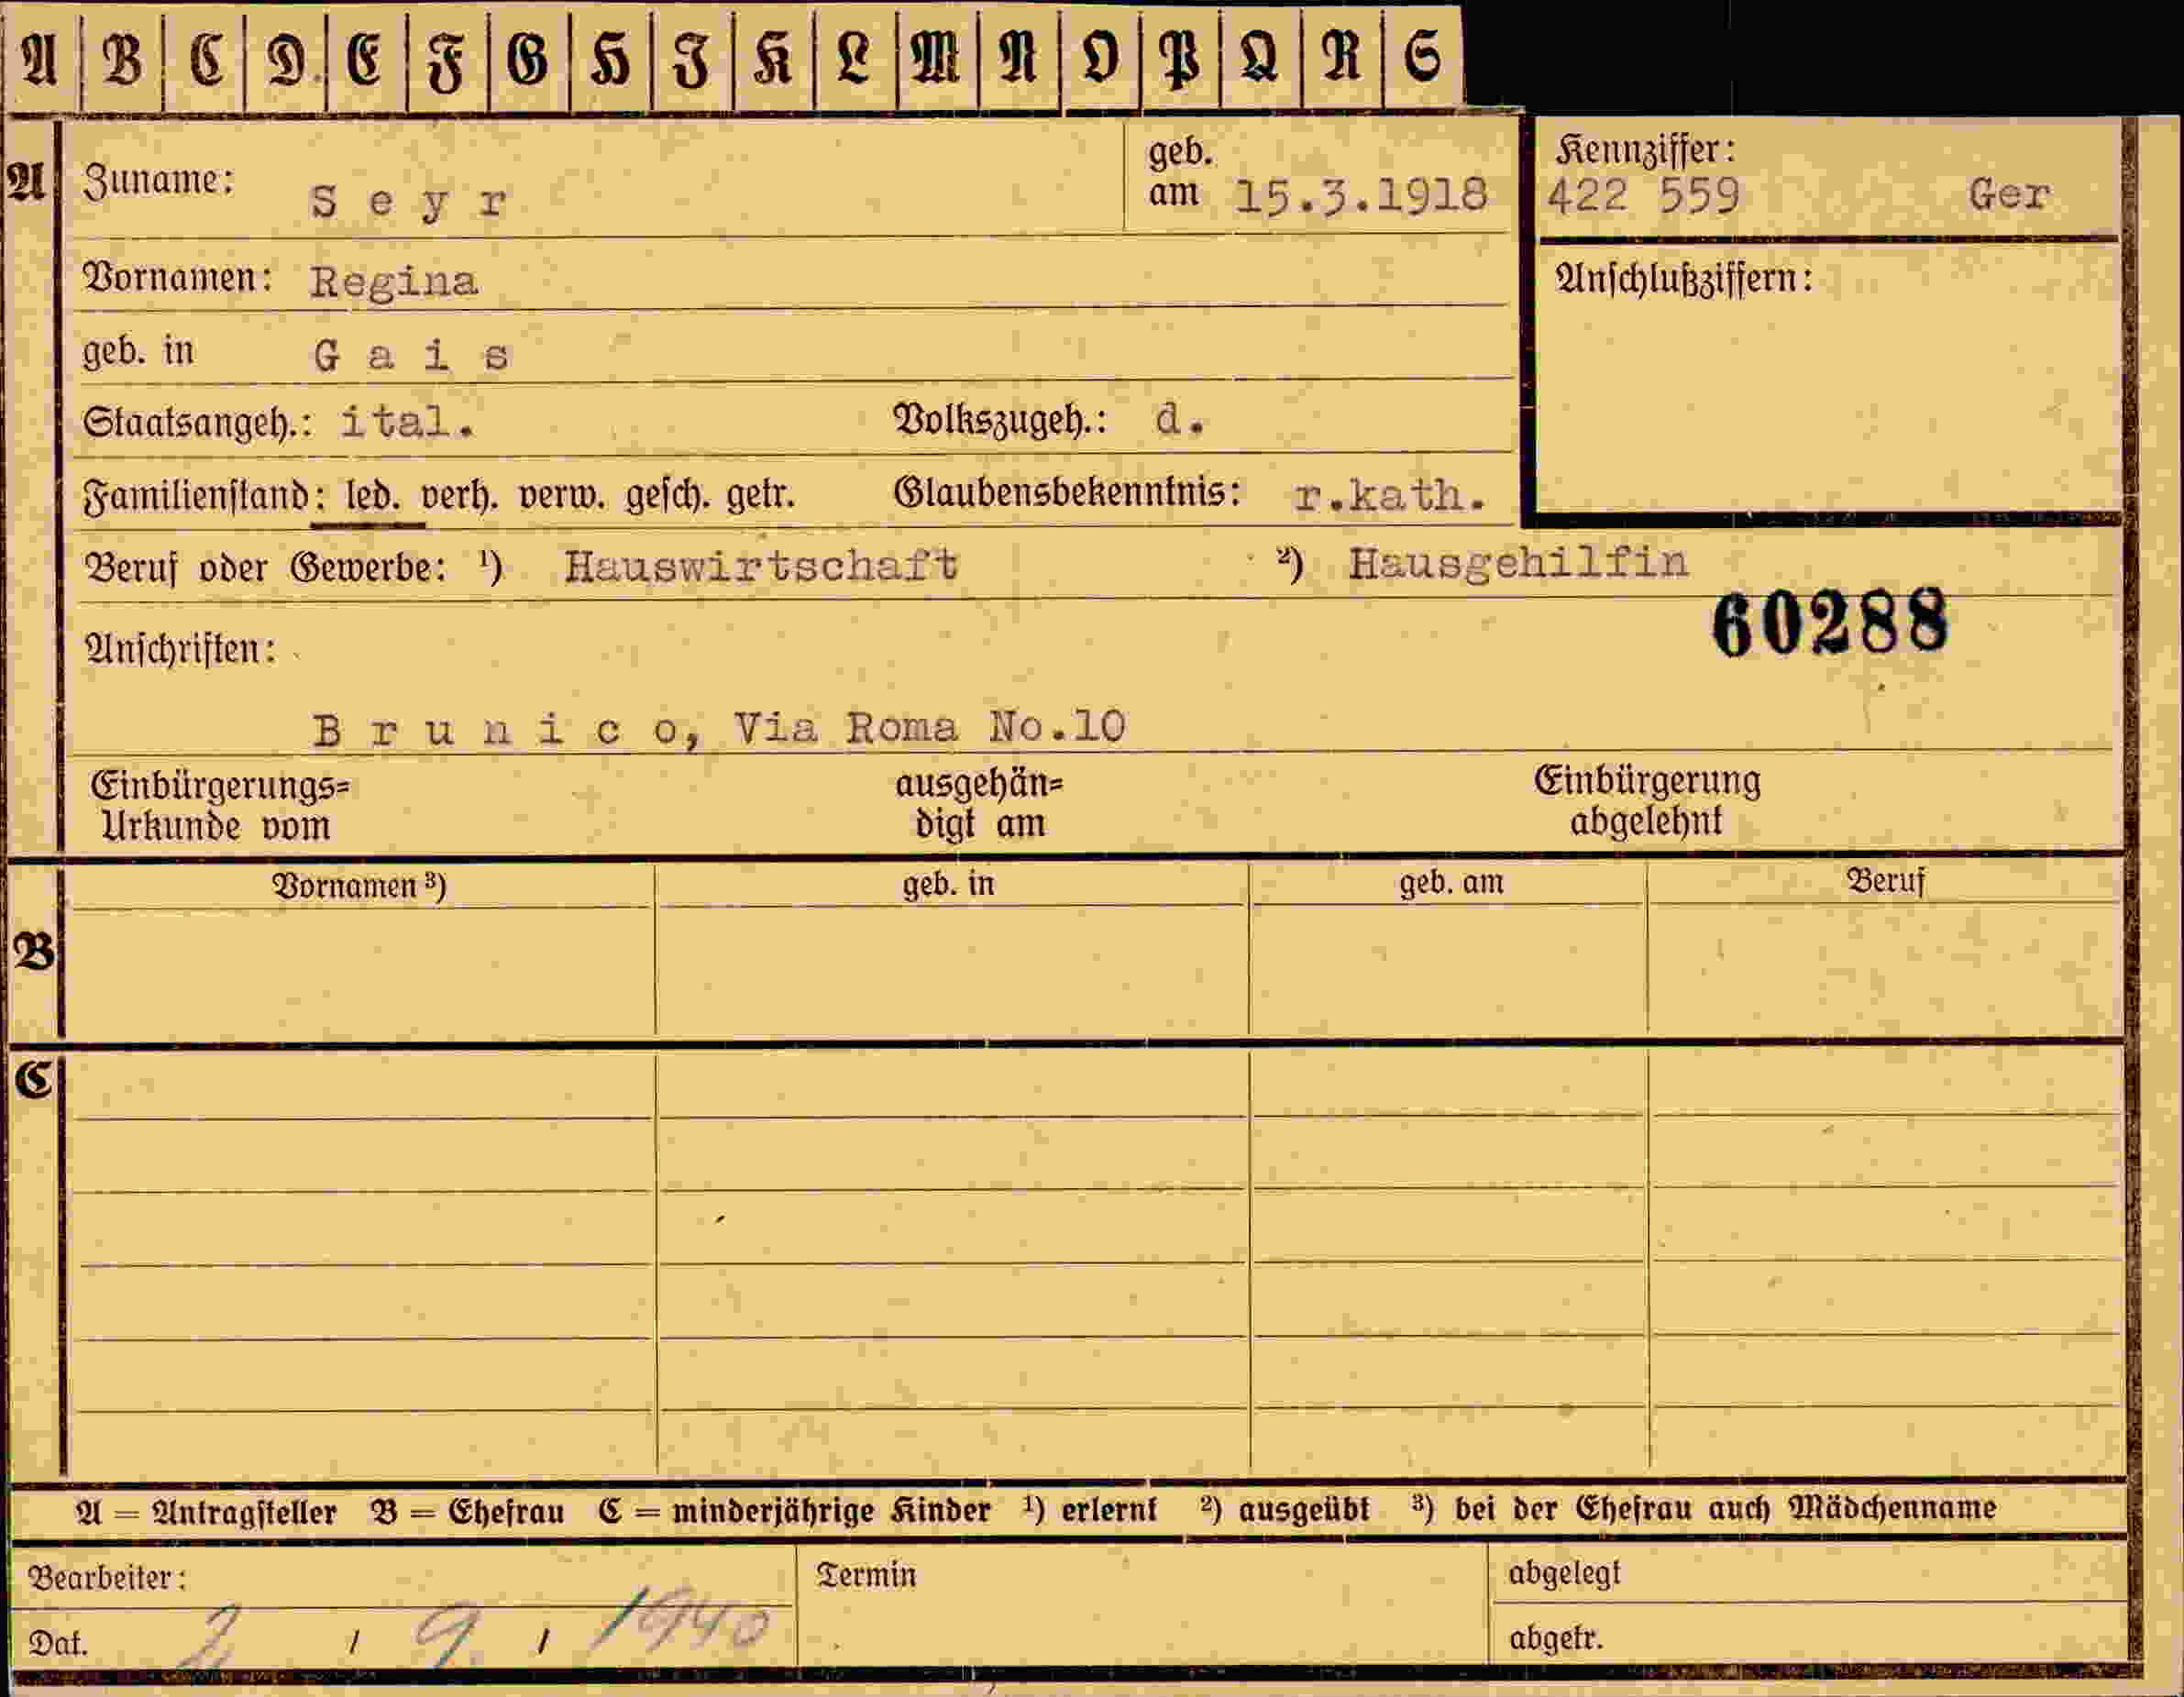 A B C D E F G H I K L M N O P Q R S
A Zuname: Seyr geb. am 15.3.1918 Kennziffer: 422 559 Ger
Vornamen: Regina Anschlußziffern:
geb. in Gais
Staatsangeh.: ital. Volkszugeh.: d.
Familienstand: led. verh. verw. gesch. getr. Glaubensbekenntnis: r.kath.
Beruf oder Gewerbe: ¹) Hauswirtschaft ²) Hausgehilfin
60288
Anschriften:
Brunico, Via Roma No.10
Einbürgerungs= ausgehän= Einbürgerung
Urkunde vom digt am abgelehnt
Vornamen ³) geb. in geb. am Beruf
B
C
A = Antragsteller B = Ehefrau C = minderjährige Kinder ¹) erlernt ²) ausgeübt ³) bei der Ehefrau auch Mädchenname
Bearbeiter: Termin abgelegt
Dat. 2 / 9. / 1940 abgetr.